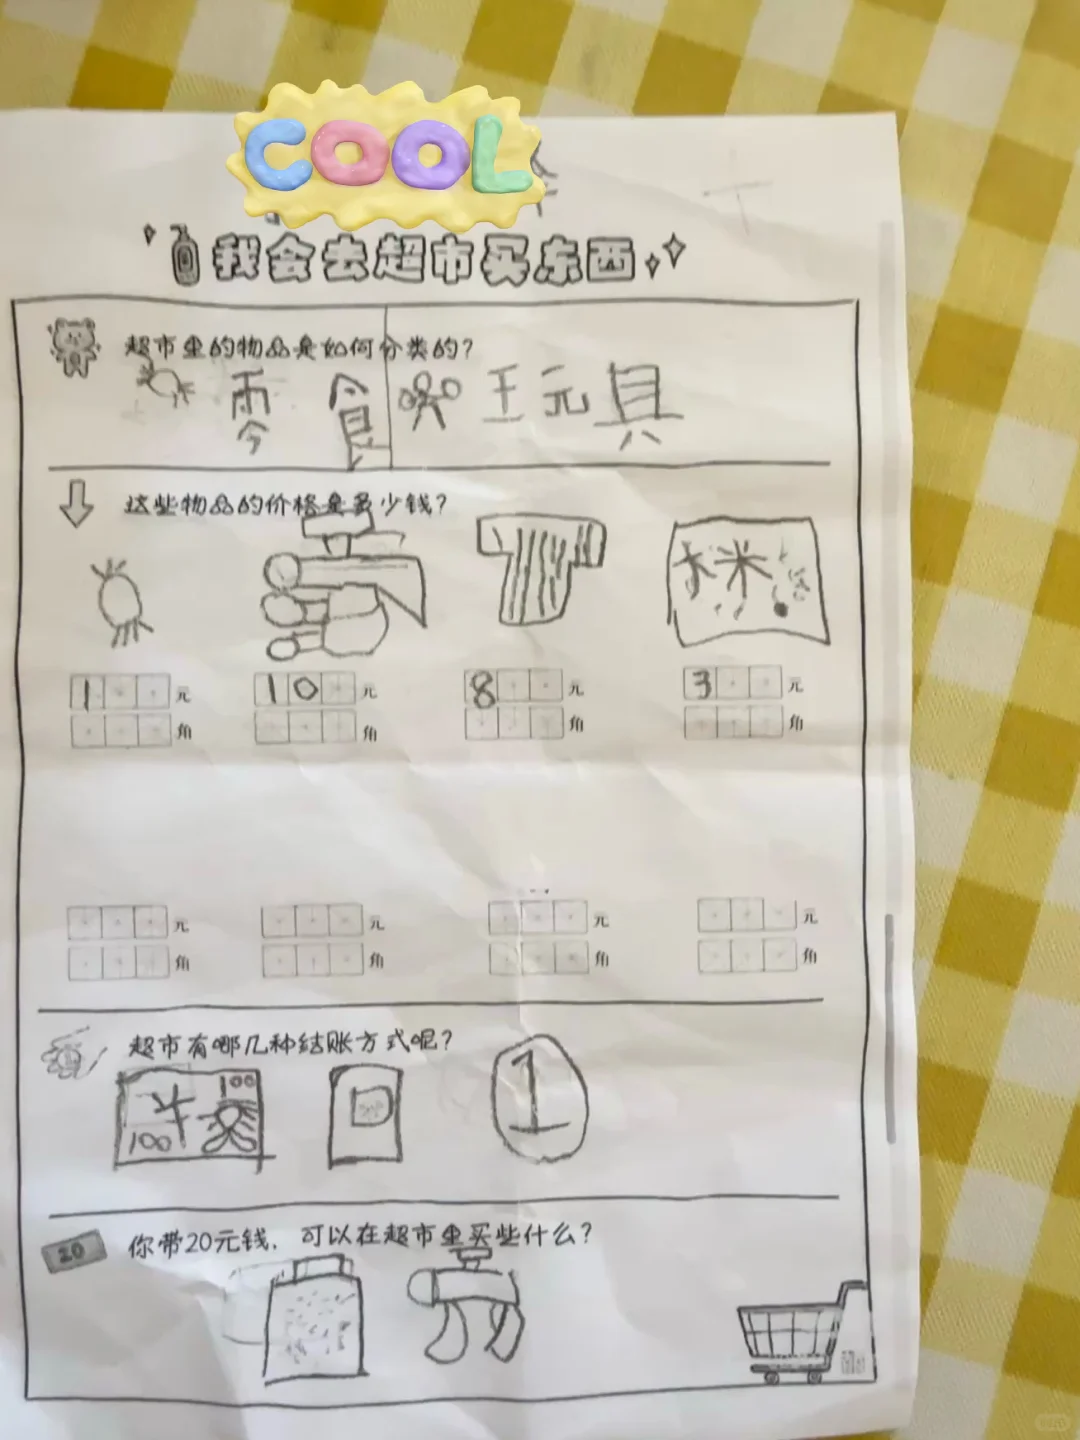 COOL
我会去超市买东西
超市里的物品是如何分类的？
零食 王元具
这些物品的价格是多少钱？
米
1 元 10 元 8 元 3 元
角 角 角 角
元 元 元 元
角 角 角 角
超市有哪几种结账方式呢？
100
100
1
20
你带20元钱，可以在超市里买些什么？